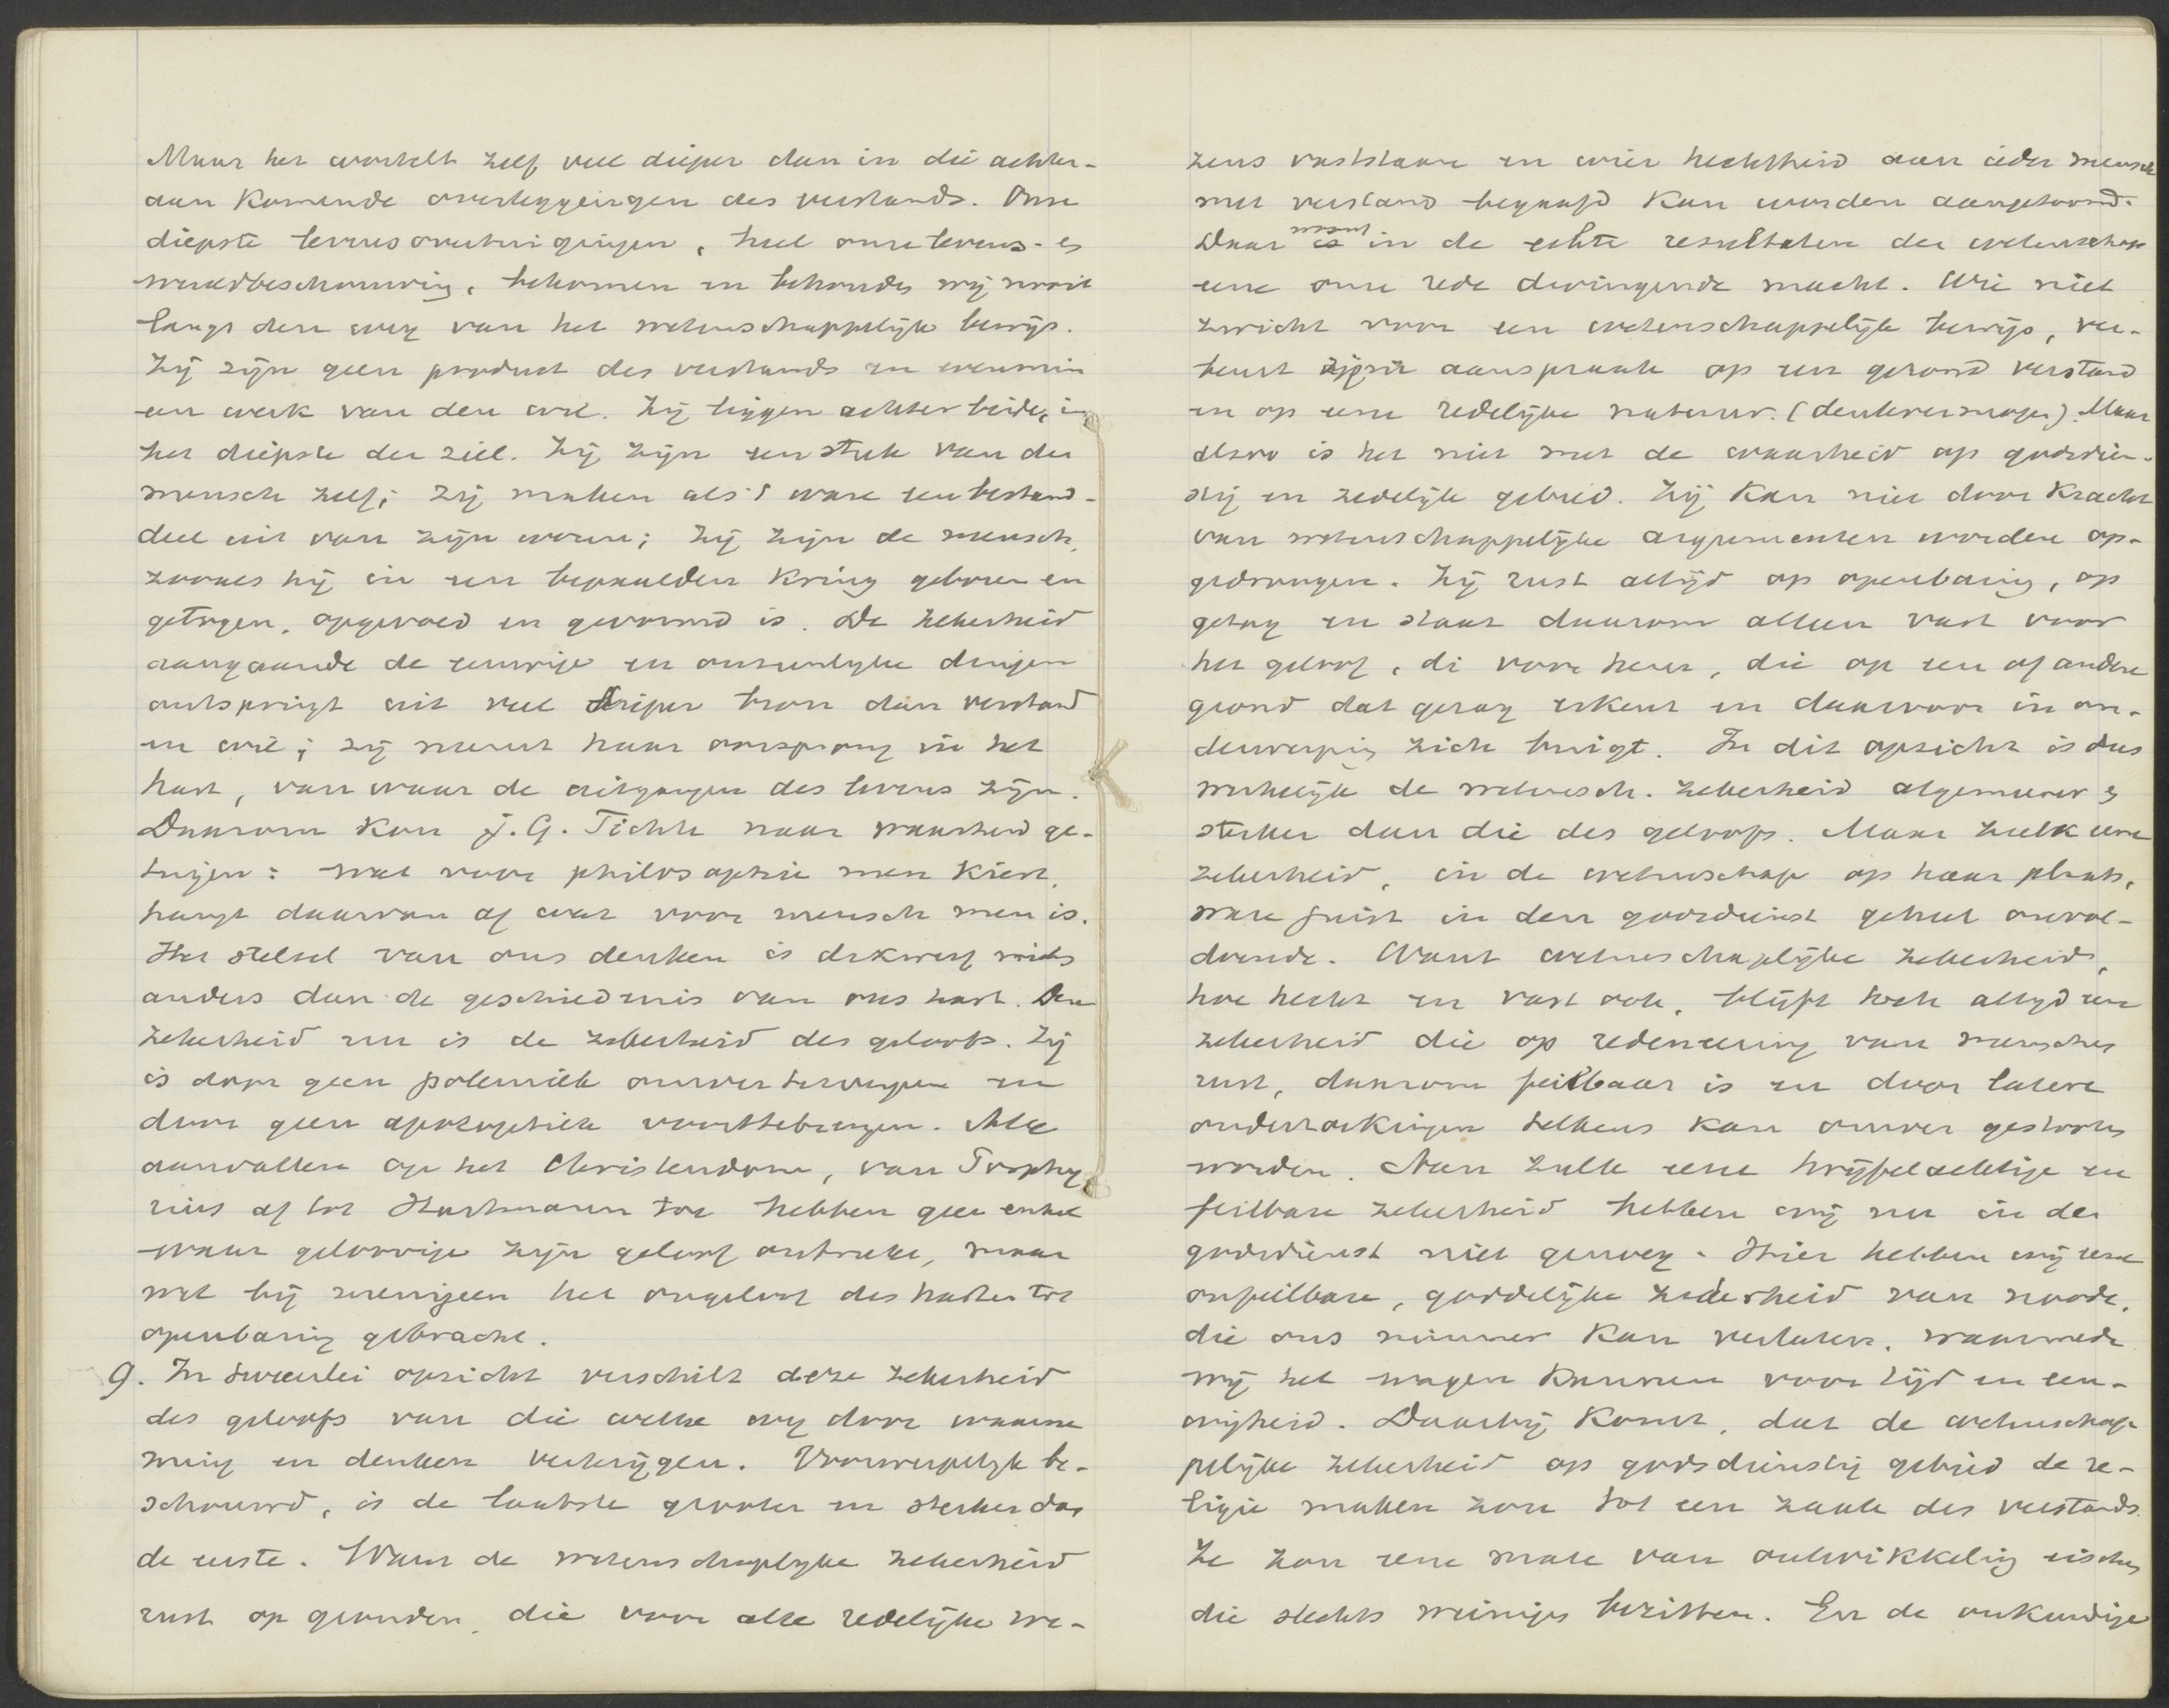 Maar het wortelt zelf veel dieper dan in die achter-
aan komende overleggingen des verstands. Onze
diepste levensovertuigingen, heel onze levens- en
wereldbeschouwing, bekomen en behouden wij nooit
langs den weg van het wetenschappelijk bewijs.
Zij zijn geen product des verstands en evenmin
een werk van den wil. Zij liggen achter beide, in
het diepste der ziel. Zij zijn een stuk van den
mensch zelf; zij maken als 't ware een bestand-
deel uit van zijn wezen; zij zijn de mensch,
zooals hij in een bepaalden kring geboren en
getogen, opgevoed en gevormd is. De zekerheid
aangaande de eeuwige en onzienlyke dingen
ontspringt uit veel dieper bron dan verstand
en wil; zij neemt haar oorsprong in het
hart, van waar de uitgangen des levens zijn.
Daarom kon J. G. Fichte naar waarheid ge-
tuigen: wat voor philosophie men kiest,
hangt daarvan af wat voor mensch men is.
Het stelsel van ons denken is dikwerf niets
anders dan de geschiedenis van ons hart. Deze
zekerheid nu is de zekerheid des geloofs. Zij
is door geen polemiek omver te werpen en
door geen apologetiek voort te brengen. Alle
aanvallen op het Christendom, van Porphy-
rius af tot Hartmann toe hebben geen enkel
waar geloovige zijn geloof ontroofd, maar
wel bij menigeen het ongeloof des harten tot
openbaring gebracht.
9. In tweeërlei opzicht verschilt deze zekerheid
des geloofs van die welke wy door waarne
ming en denken verkrijgen. Voorwerpelyk be-
schouwd, is de laatste grooter en sterker dan
de eerste. Want de wetenschaplyke zekerheid
rust op gronden, die voor alle redelijke we-
zens vaststaan en wier hechtheid aan ieder mensch
met verstand begaafd kan worden aangetoond.
Daar woont in de echte resultaten der wetenschap
eene onze rede dwingende macht. Wie niet
zwicht voor een wetenschappelijk bewijs, ver-
beurt zijne aanspraak op een gezond verstand
en op eene redelijke natuur. (denkvermogen). Maar
alzoo is het niet met de waarheid op godsdien-
stig en zedelijk gebied. Zij kan niet door kracht
van wetenschappelijke argumenten worden op-
gedrongen. Zij rust altijd op openbaring, op
gezag en staat daarom alleen vast voor
het geloof, di voor hem, die op een of andere
grond dat gezag erkent en daarvoor in on-
derwerping zich buigt. In dit opzicht is dus
werkelijk de wetensch. zekerheid algemeener en
sterker dan die des geloofs. Maar zulk eene
zekerheid, in de wetenschap op haar plaats,
ware juist in den godsdienst geheel onvol-
doende. Want wetenschaplijke zekerheid,
hoe hecht en vast ook, blijft toch altyd eene
zekerheid die op redeneering van menschen
rust, daarom feilbaar is en door latere
onderzoekingen telkens kan omver gestooten
worden. Aan zulk eene twijfelachtige en
feilbare zekerheid hebben wij nu in den
godsdienst niet genoeg. Hier hebben wij eene
onfeilbare, goddelijke zekerheid van noode,
die ons nimmer kan verlaten, waarmede
wij het wagen kunnen voor tijd en eeu-
wigheid. Daarbij komt, dat de wetenschap-
pelijke zekerheid op godsdienstig gebied de re-
ligie maken zou tot een zaak des verstands.
Ze zou eene mate van ontwikkeling eischen
die slechts weinigen bezitten. En de onkundige